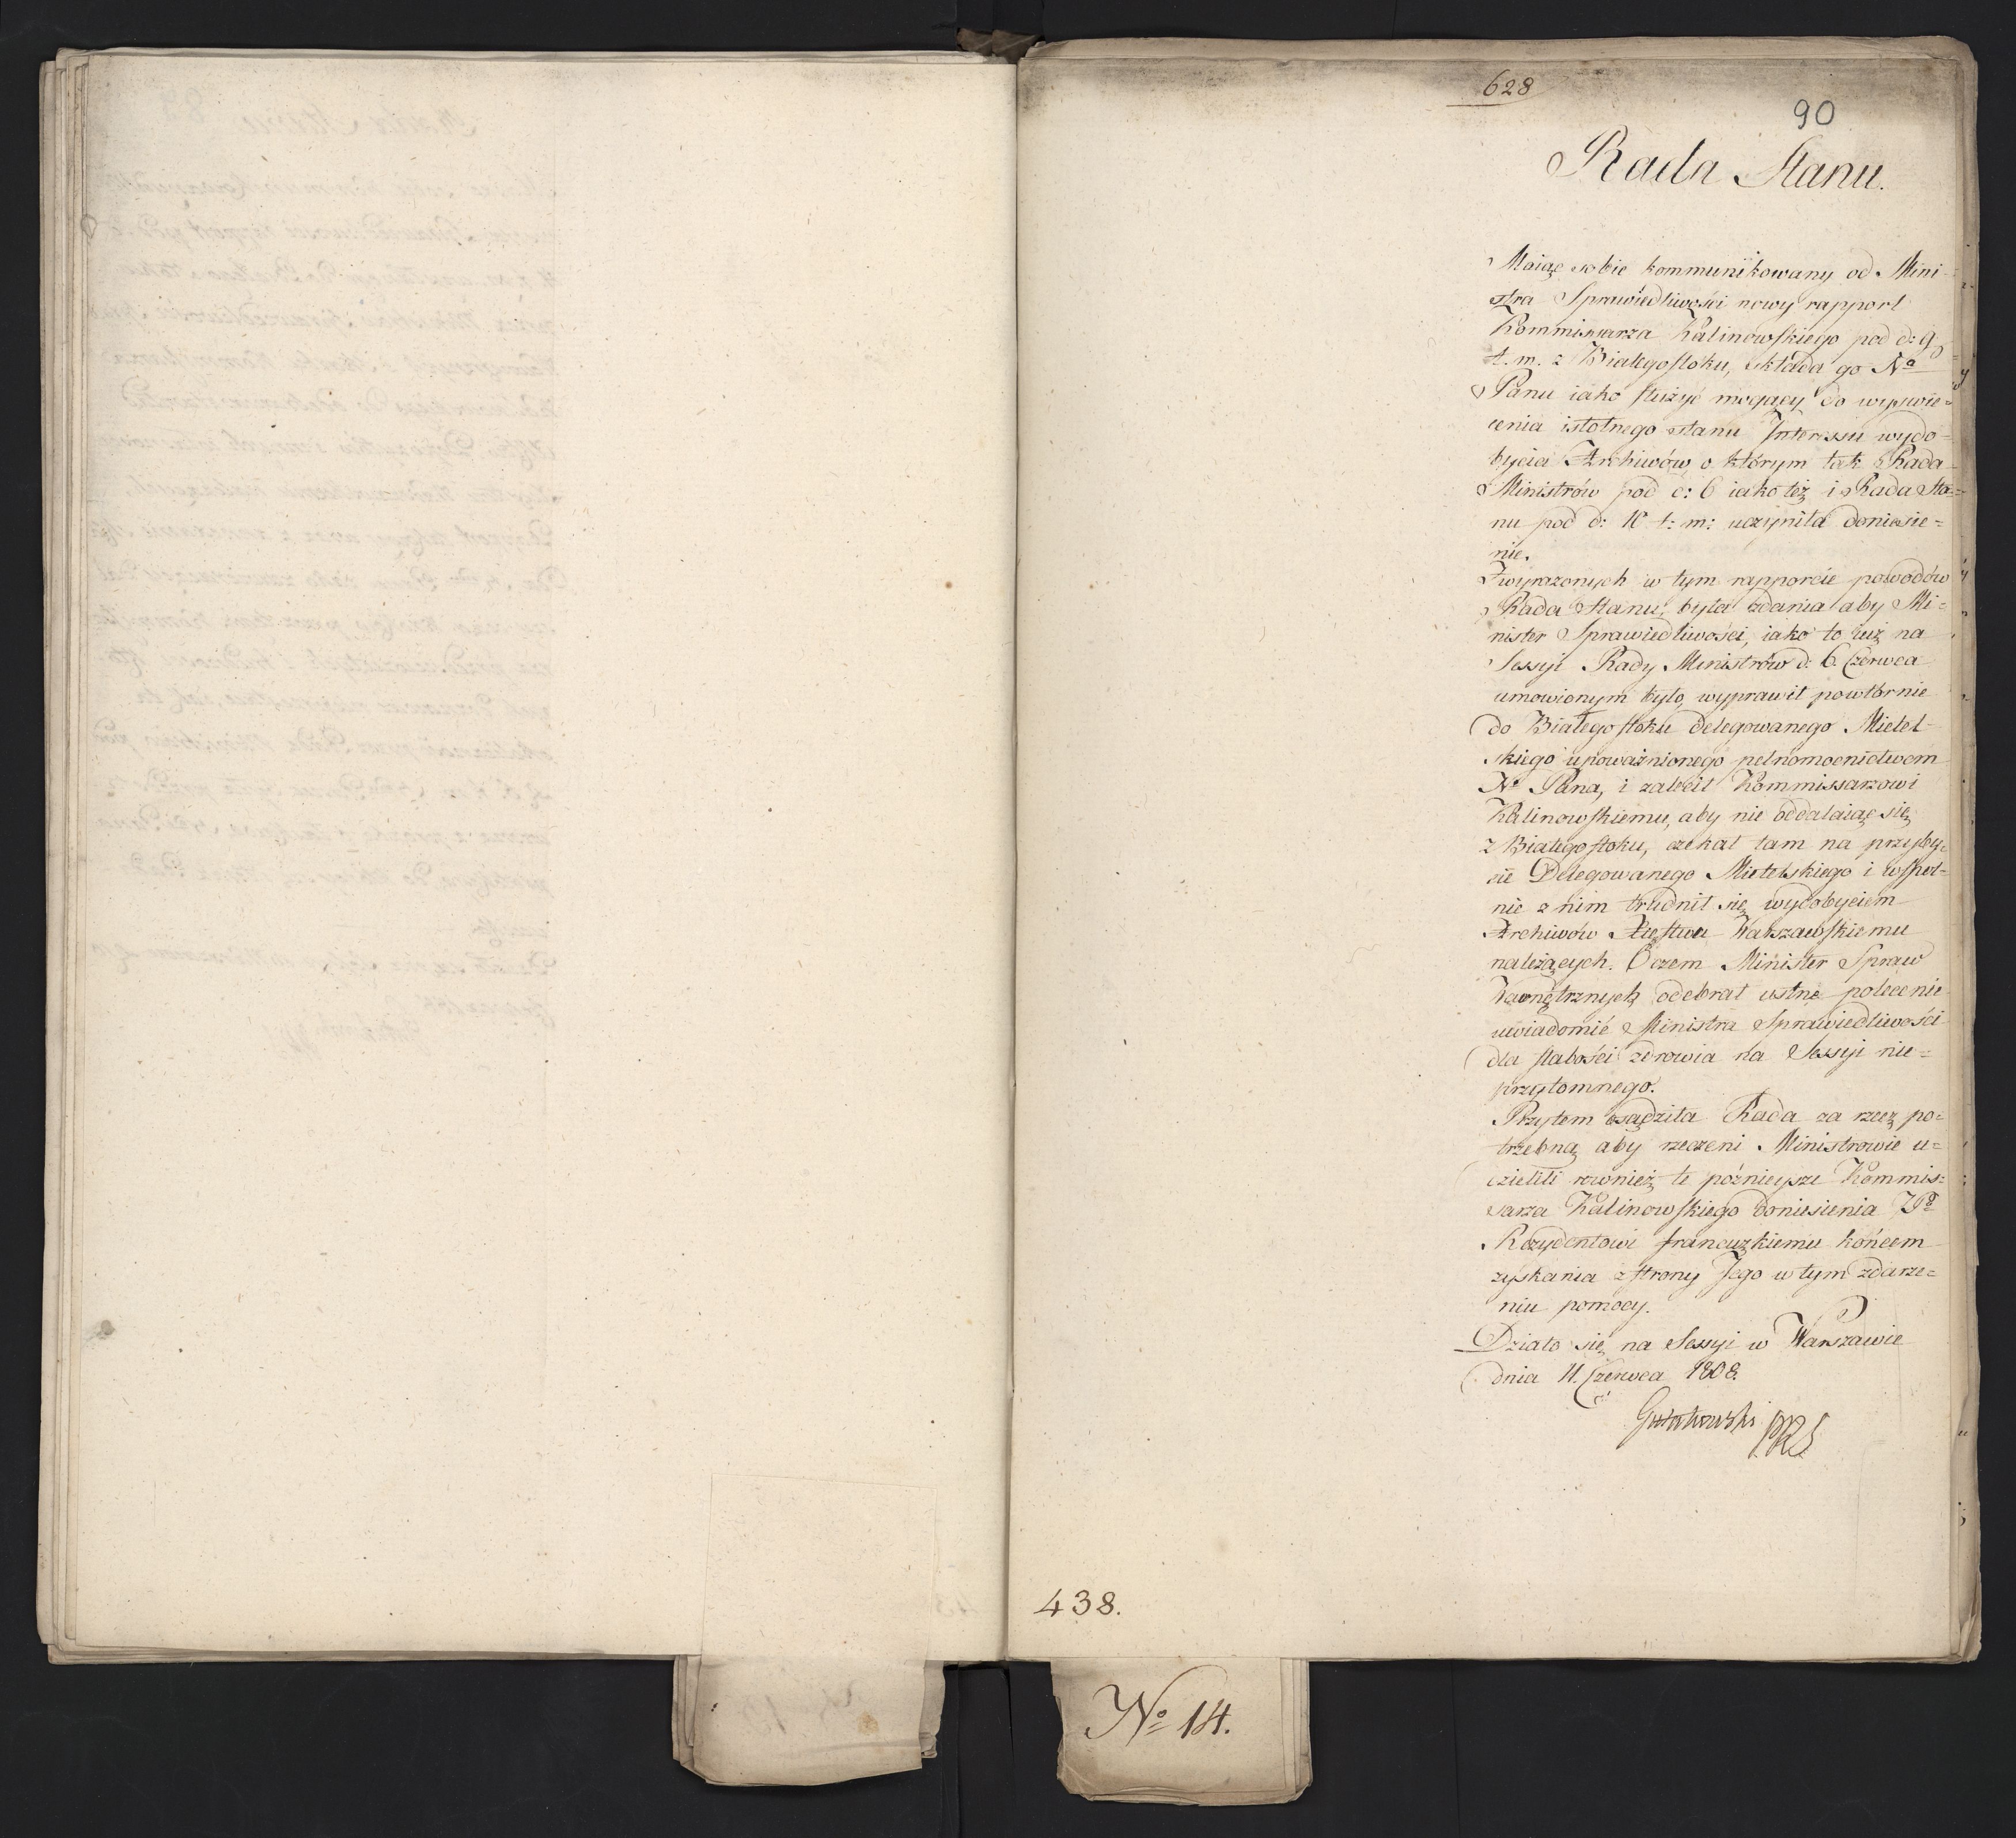 628
90
Rada Stanu.
Maiąc sobie kommunikowany od Mini-
stra Sprawiedliwości nowy rapport
Kommissarza Kalinowskiego pod d: 9
t. m. z Białegostoku, składa go Na
Panu iako służyć mogący do wyświe=
cenia istotnego stanu Interessu wydo=
bycia Archiwów, o którym tak Rada
Ministrów pod d: 6 iako też i Rada Sta=
nu pod d: 10 t: m: uczyniła doniesie=
nie.
Z wyrazonych w tym rapporcie powodów
Rada Stanu, była zdania aby Mi=
nister Sprawiedliwości, iako to iuż na
Sessyi Rady Ministrów d: 6. Czerwca
umowionym było, wyprawił powtórnie
do Białegostoku delegowanego Mielel-
skiego upoważnionego pełnomocnictwem
No Pana, i zalecił Kommissarzowi
Kalinowskiemu, aby nie oddalaiąc się
z Białegostoku, czekał tam na przyby=
cie Delegowanego Mietelskiego i wspol=
nie z nim trudnił się wydobyciem
Archiwów Xięstwu Warszawskiemu
należących. O czem Minister Spraw
Wewnętrznych odebrał ustne polecenie
uwiadomić Ministra Sprawiedliwości
dla słabości zdrowia na Sessyi nie=
przytomnego.
Przytem osądziła Rada za rzecz po=
trzebną aby rzeczeni Ministrowie u=
dzielili rownież te pózniejsze Kommis=
sarza Kalinowskiego doniesienia JPu
Rezydentowi francuzkiemu końcem
zyskania z strony Jego w tym zdarze=
niu pomocy.
Działo się na Sessyi w Warszawie
dnia 11. Czerwca 1808.
Gutakowski PRS
438.
No 14.